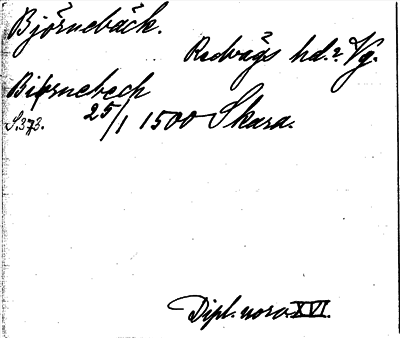 Björnebäck.
Redvägs hd.? Vg.
Biørnebech
S. 373. 25/1 1500 Skara.
Dipl. norv. XVI.